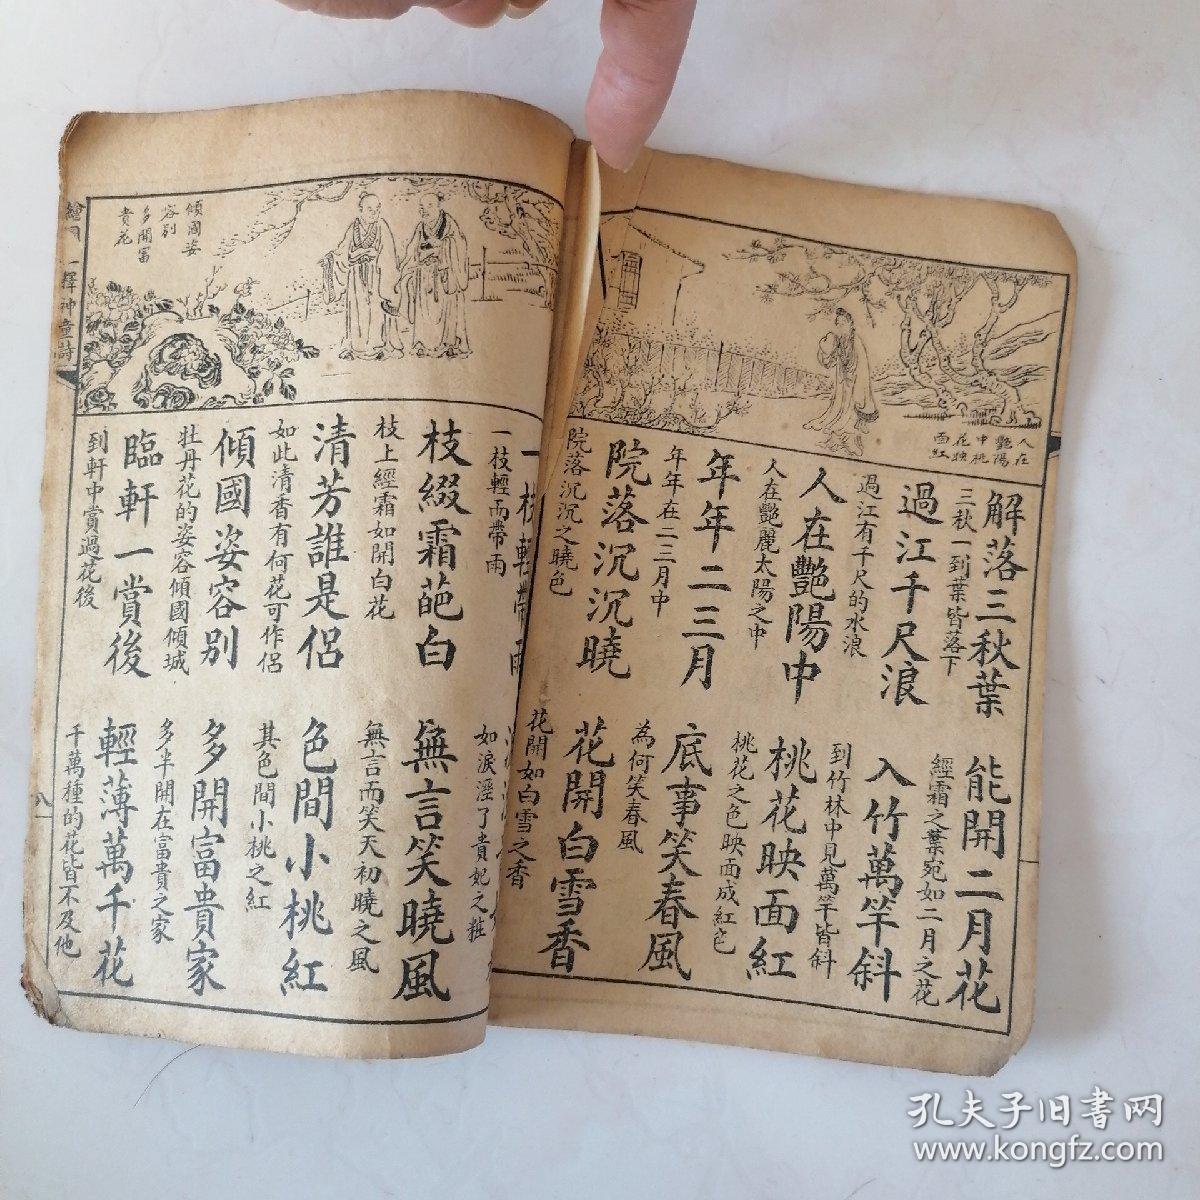 人在
艷陽
中桃
花映
面紅
解落三秋葉
能開二月花
三秋一到葉皆落下
經霜之葉宛如二月之花
過江千尺浪
入竹萬竿斜
過江有千尺的水浪
到竹林中見萬竿皆斜
人在艷陽中
桃花映面紅
人在艷麗太陽之中
桃花之色映面成紅色
年年二三月
底事笑春風
年年在二三月中
為何笑春風
院落沉沉曉
花開白雪香
院落沉沉之曉色
花開如白雪之香
傾國姿
容別
多開富
貴花
一枝輕帶雨
一枝輕而帶雨
如淚溼了貴妃之粧
枝綴霜葩白
無言笑曉風
枝上經霜如開白花
無言而笑天初曉之風
清芳誰是侶
色間小桃紅
如此清香有何花可作侶
其色間小桃之紅
傾國姿容別
多開富貴家
牡丹花的姿容傾國傾城
多半開在富貴之家
臨軒一賞後
輕薄萬千花
到軒中賞過花後
千萬種的花皆不及他
釋神童詩
八
孔夫子旧书网
www.kongfz.com